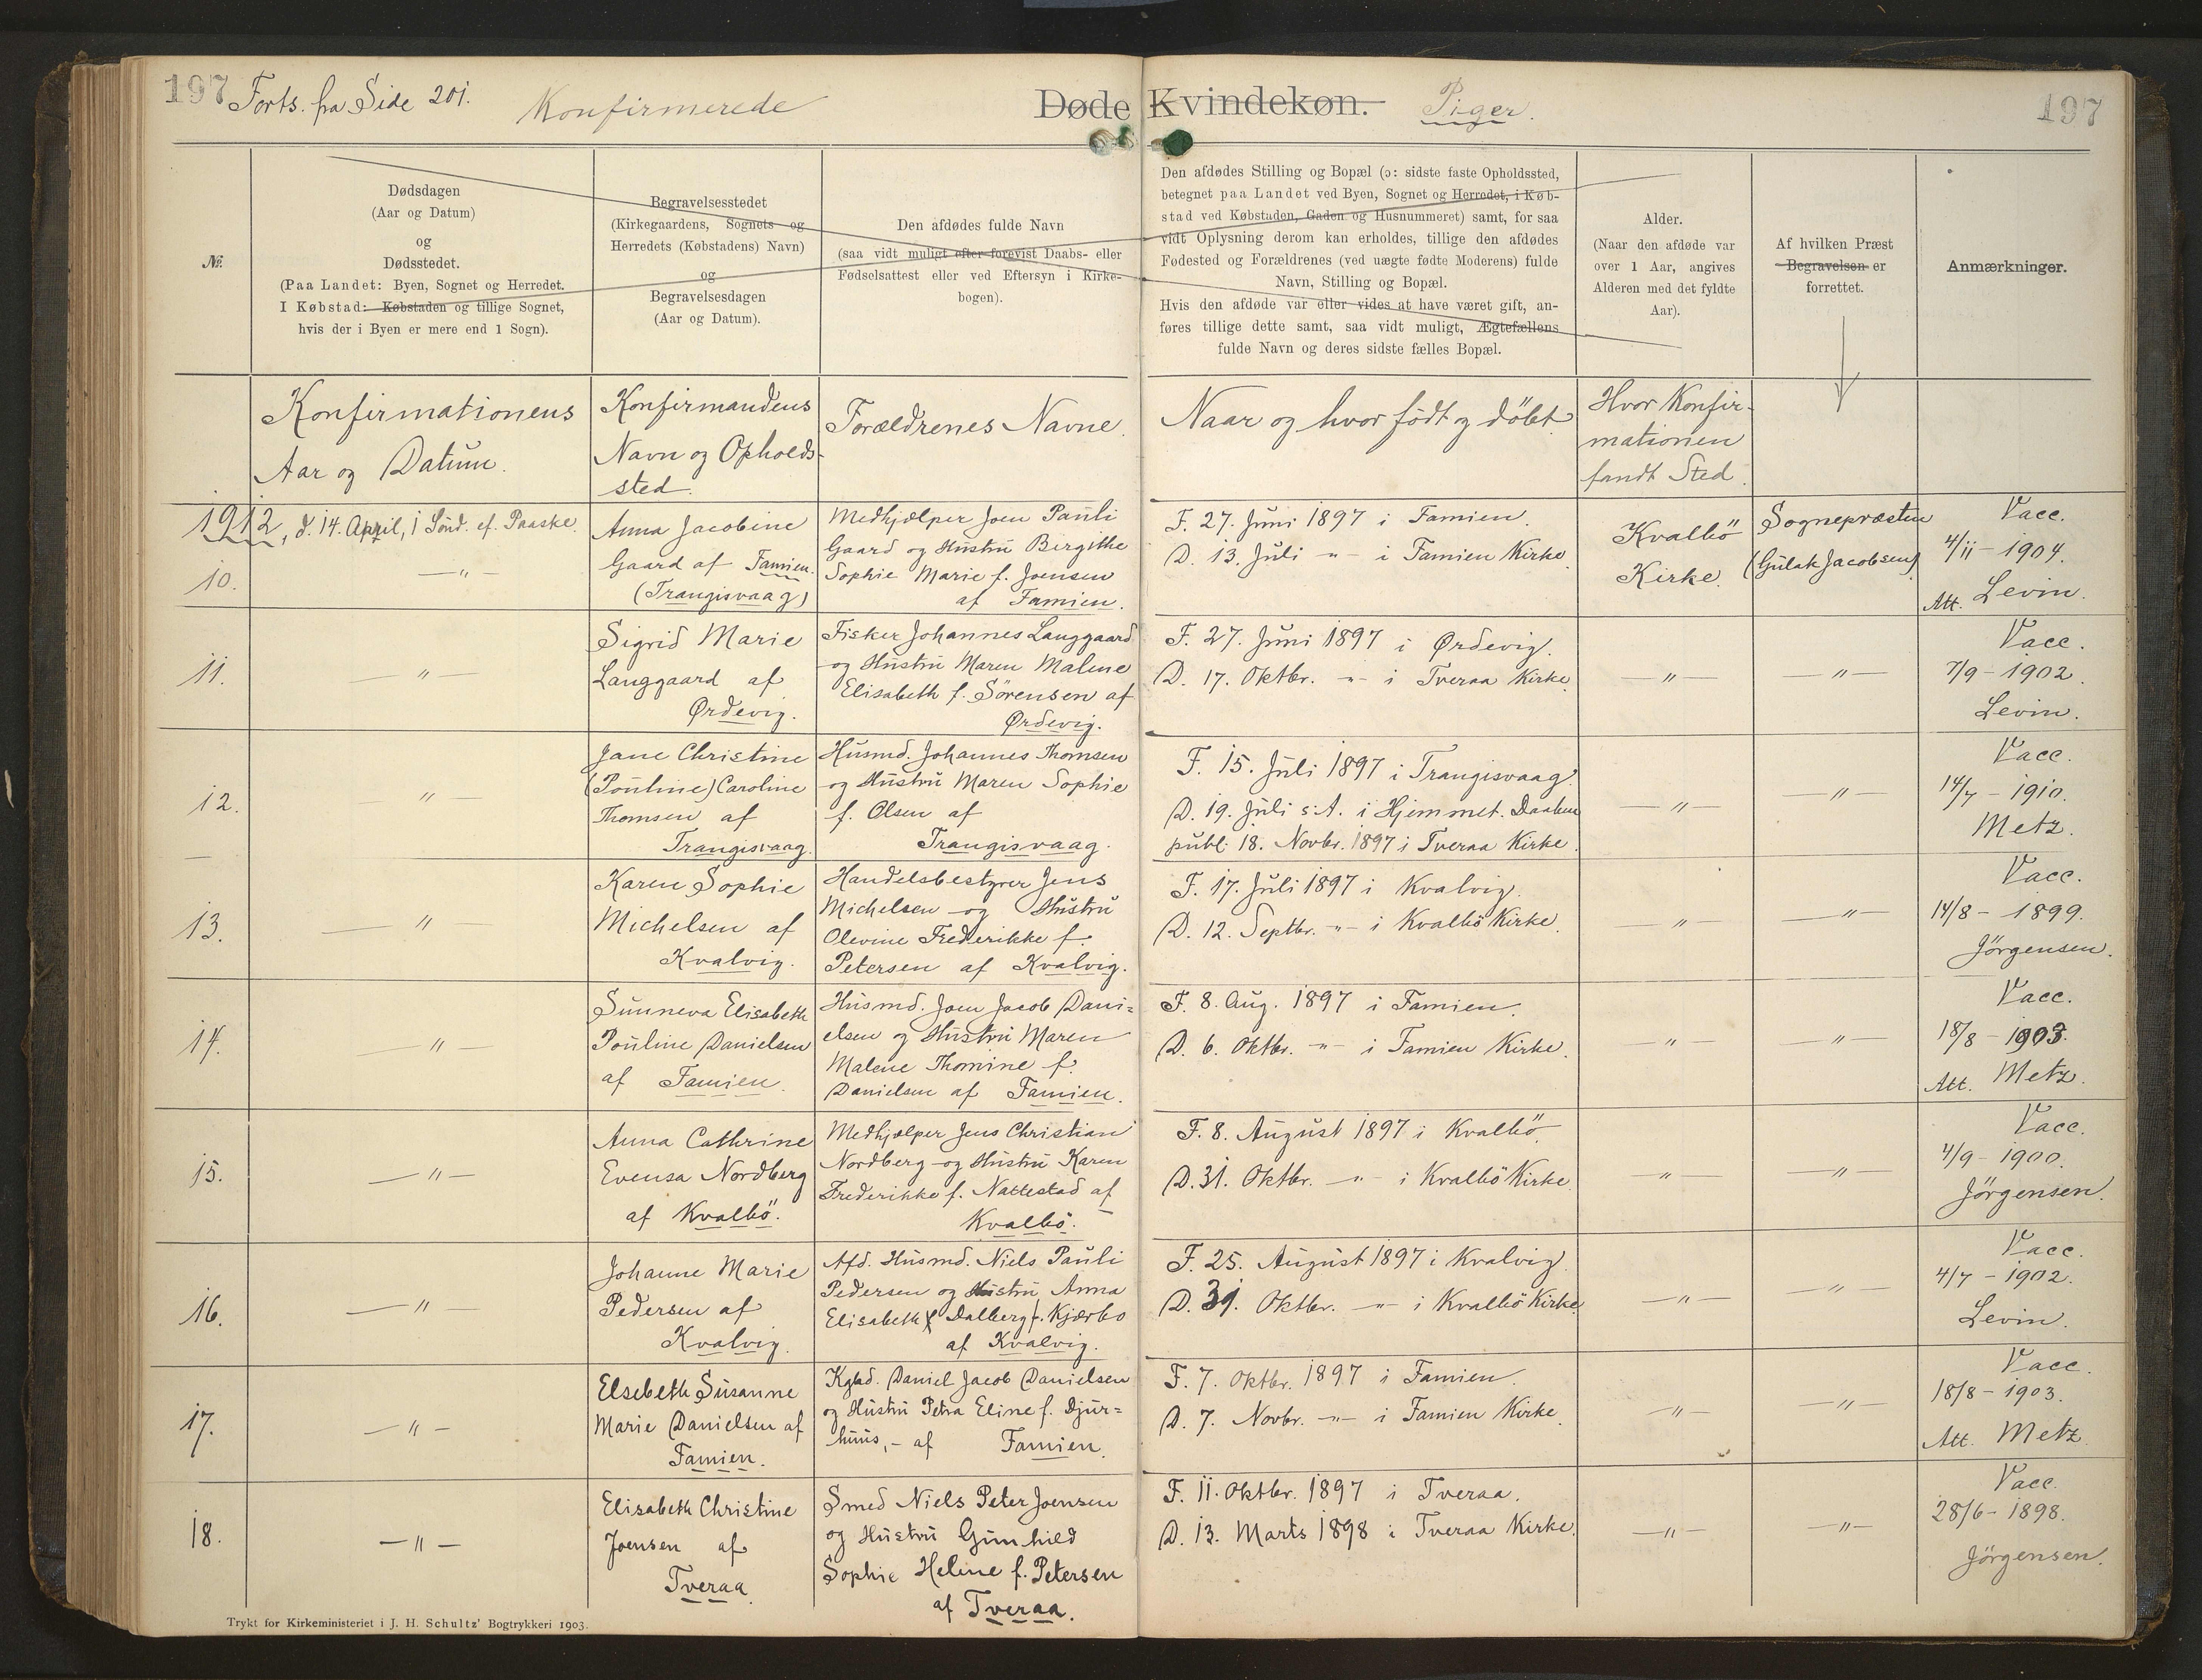 197 Forts. fra Side 201. Konfirmerede Døde Kvindekøn. Piger. 197
№
Dødsdagen
(Aar og Datum)
og
Dødsstedet.
(Paa Landet: Byen, Sognet og Herredet.
I Købstad: Købstaden og tillige Sognet,
hvis der i Byen er mere end 1 Sogn).
Begravelsesstedet
(Kirkegaardens, Sognets og
Herredets (Købstadens) Navn)
og
Begravelsesdagen
(Aar og Datum).
Den afdødes fulde Navn
(saa vidt muligt efter forevist Daabs- eller
Fødselsattest eller ved Eftersyn i Kirke-
bogen).
Den afdødes Stilling og Bopæl (ɔ: sidste faste Opholdssted,
betegnet paa Landet ved Byen, Sognet og Herredet, i Køb-
stad ved Købstaden, Gaden og Husnummeret) samt, for saa
vidt Oplysning derom kan erholdes, tillige den afdødes
Fødested og Forældrenes (ved uægte fødte Moderens) fulde
Navn, Stilling og Bopæl.
Hvis den afdøde var eller vides at have været gift, an-
føres tillige dette samt, saa vidt muligt, Ægtefællens
fulde Navn og deres sidste fælles Bopæl.
Alder.
(Naar den afdøde var
over 1 Aar, angives
Alderen med det fyldte
Aar).
Af hvilken Præst
Begravelsen er
forrettet.
Anmærkninger.
Konfirmationens
Aar og Datum.
Konfirmandens
Navn og Opholds-
sted.
Forældrenes Navne.
Naar og hvor født og döbt
Hvor Konfir-
mationen
fandt Sted.
1912, d. 14. April, 1 Sönd. ef. Paaske.
10.
—"—
Anna Jacobine
Gaard af Famien.
(Trangisvaag)
Medhjælper Joen Pauli
Gaard og Hustru Birgithe
Sophie Marie f. Joensen
af Famien.
F. 27. Juni 1897 i Famien.
D. 13. Juli -"- i Famien Kirke.
Kvalbö
Kirke.
Sognepræsten
(Gulak Jacobsen)
Vacc.
4/11 - 1904.
Att. Levin.
11.
—"—
Sigrid Marie
Langgaard af
Ørdevig.
Fisker Johannes Langgaard
og Hustru Maren Malene
Elisabeth f. Sörensen af
Ørdevig.
F. 27. Juni 1897 i Ørdevig.
D. 17. Oktbr. -"- i Tveraa Kirke.
—"—
—"—
Vacc.
7/9 - 1902.
Levin.
12.
—"—
Jane Christine
(Pouline) Caroline
Thomsen af
Trangisvaag.
Husmd. Johannes Thomsen
og Hustru Maren Sophie
f. Olsen af
Trangisvaag.
F. 15. Juli 1897 i Trangisvaag.
D. 19. Juli s.A. i Hjemmet. Daaben
publ. 18. Novbr. 1897 i Tveraa Kirke.
—"—
—"—
Vacc.
14/7 - 1910.
Metz.
13.
—"—
Karen Sophie
Michelsen af
Kvalvig.
Handelsbestyrer Jens
Michelsen og Hustru
Olevine Frederikke f.
Petersen af Kvalvig.
F. 17. Juli 1897 i Kvalvig.
D. 12. Septbr. -"- i Kvalbö Kirke.
—"—
—"—
Vacc.
14/8 - 1899.
Jörgensen.
14.
—"—
Sunneva Elisabeth
Pouline Danielsen
af Famien.
Husmd. Joen Jacob Dani=
elsen og Hustru Maren
Malene Thomine f.
Danielsen af Famien.
F. 8. Aug. 1897 i Famien.
D. 6. Oktbr. -"- i Famien Kirke.
—"—
—"—
Vacc.
18/8 - 1903.
Att. Metz.
15.
—"—
Anna Cathrine
Evensa Nordberg
af Kvalbö.
Medhjælper Jens Christian
Nordberg og Hustru Karen
Frederikke f. Nattestad af
Kvalbö.
F. 8. August 1897 i Kvalbö.
D. 31. Oktbr. -"- i Kvalbö Kirke.
—"—
—"—
Vacc.
4/9 - 1900.
Jörgensen.
16.
—"—
Johanne Marie
Pedersen af
Kvalvig.
Afd. Husmd. Niels Pauli
Pedersen og Hustru Anna
Elisabeth Dalberg f. Kjærbo
af Kvalvig.
F. 25. August 1897 i Kvalvig.
D. 31. Oktbr. -"- i Kvalbö Kirke.
—"—
—"—
Vacc.
4/7 - 1902.
Levin.
17.
—"—
Elsebeth Susanne
Marie Danielsen af
Famien.
Kgbd. Daniel Jacob Danielsen
og Hustru Petra Eline f. Djur=
huus, - af Famien.
F. 7. Oktbr. 1897 i Famien.
D. 7. Novbr. -"- i Famien Kirke.
—"—
—"—
Vacc.
18/8 - 1903.
Att. Metz.
18.
—"—
Elisabeth Christine
Joensen af
Tveraa.
Smed Niels Peter Joensen
og Hustru Gunhild
Sophie Helene f. Petersen
af Tveraa.
F. 11. Oktbr. 1897 i Tveraa.
D. 13. Marts 1898 i Tveraa Kirke.
—"—
—"—
Vacc.
28/6 - 1898.
Jörgensen.
Trykt for Kirkeministeriet i J. H. Schultz' Bogtrykkeri 1903.